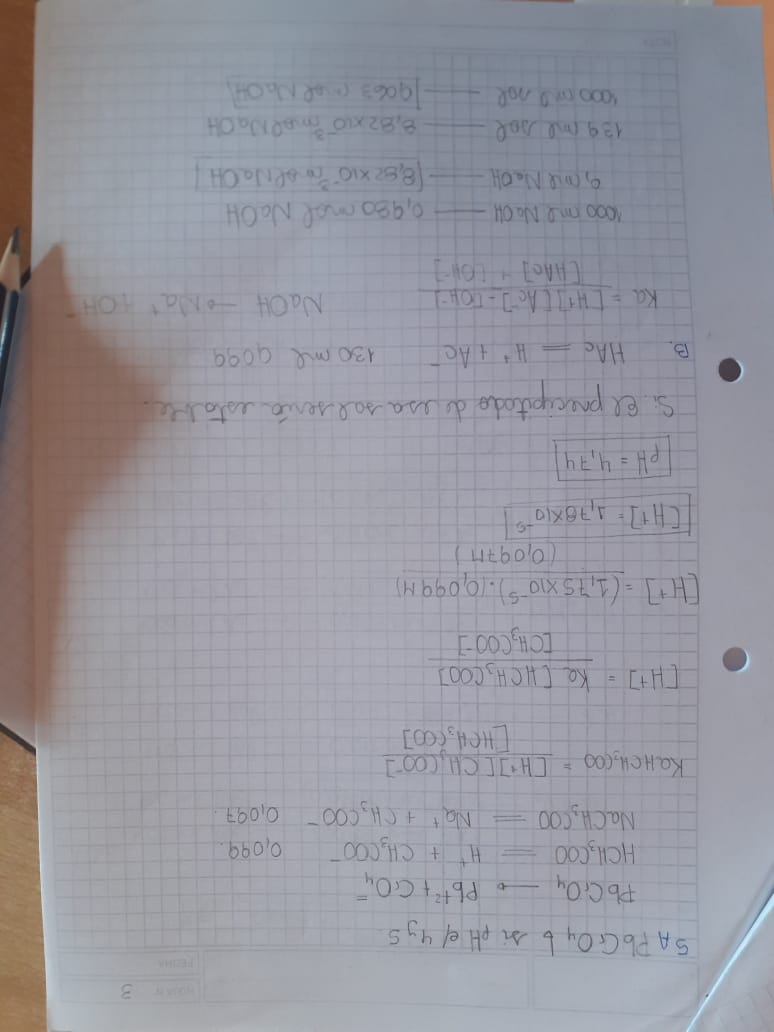 HOJA Nº 3
FECHA
5A PbCrO4 ↓ si pH e/ 4 y 5.
PbCrO4 → Pb+2 + CrO4=
HCH3COO = H+ + CH3COO- 0,099.
NaCH3COO = Na+ + CH3COO- 0,097.
KaHCH3COO = [H+][CH3COO-]
[HCH3COO]
[H+] = Ka [HCH3COO]
[CH3COO-]
[H+] = (1,75x10-5).(0,099M)
(0,097M)
[H+] = 1,78x10-5
pH = 4,74
Si. El precipitado de esa sal sería estable.
B. HAc = H+ + Ac- 130 ml 0,099
Ka = [H+][Ac-] - [OH-] NaOH → Na+ + OH-
[HAc] + [OH-]
1000 ml NaOH — 0,980 mol NaOH
9,ml NaOH — 8,82x10-3 mol NaOH
139 ml sol — 8,82x10-3 mol NaOH
1000 ml sol — 0,063 mol NaOH
NOTA